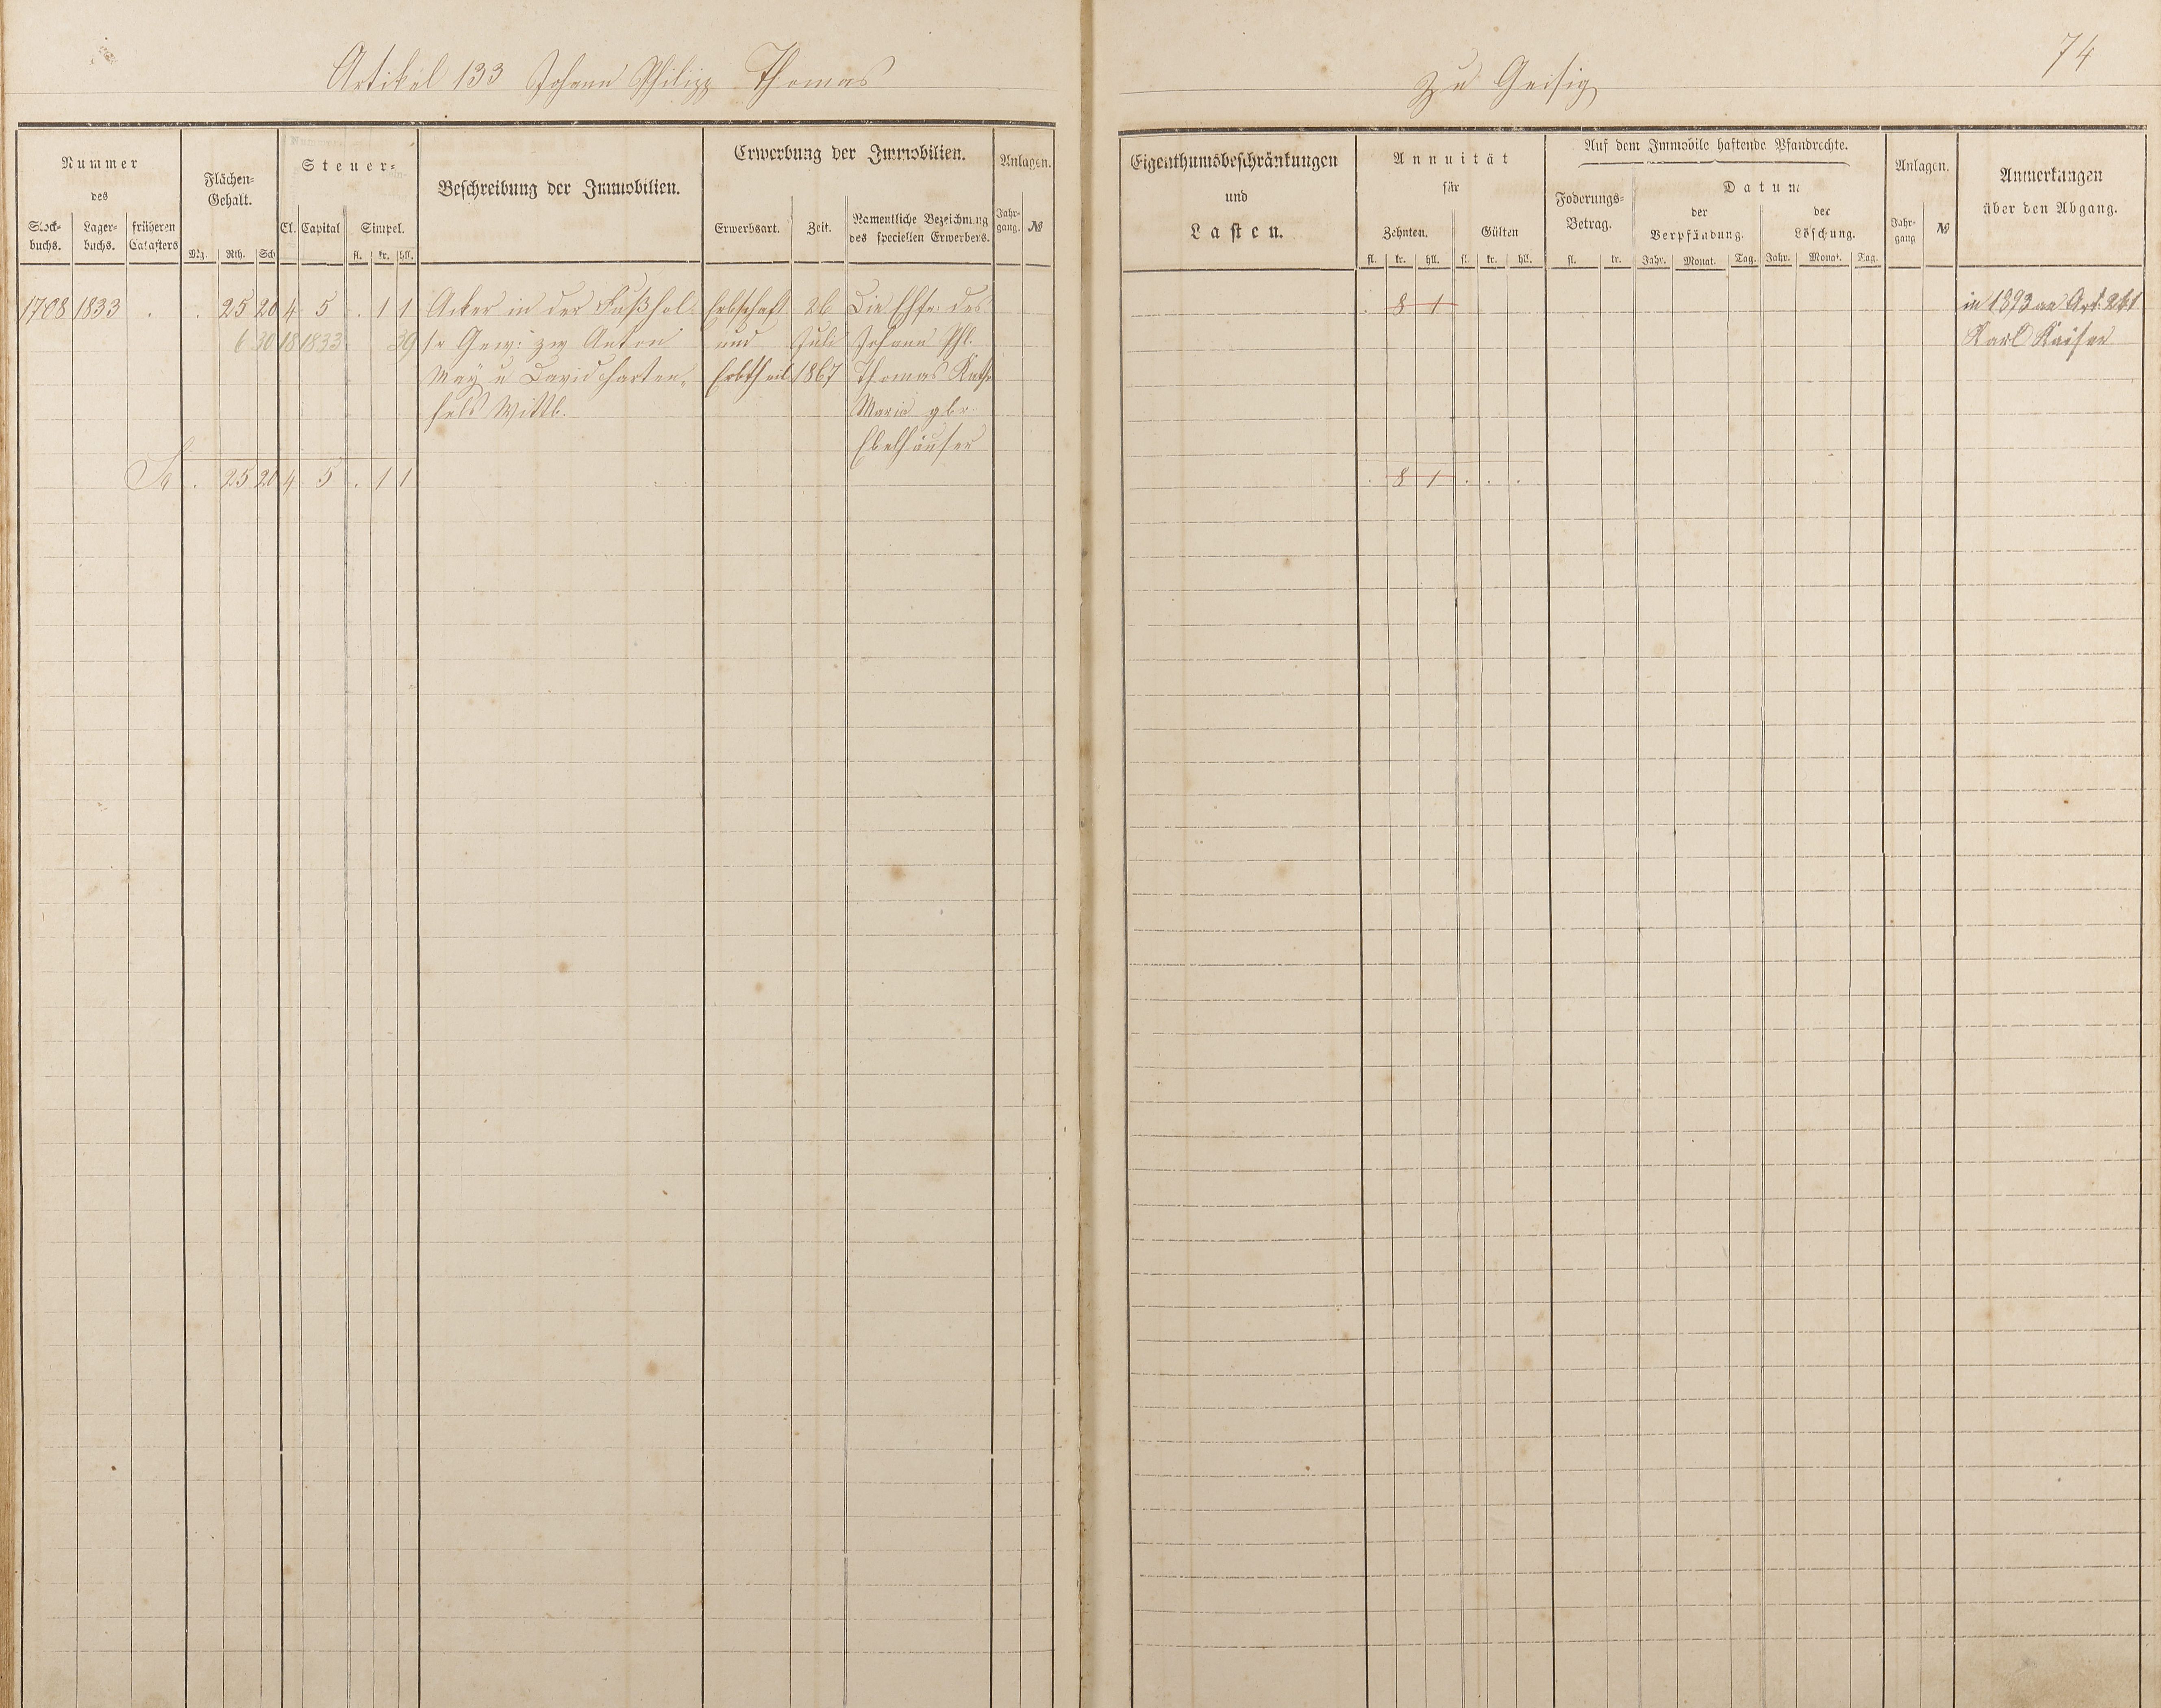 Artikel 133 Johann Philipp Thomas
Zu Geisig
74
Nummer
des
Stock-
buchs.
Lager-
buchs.
früheren
Catasters
Flächen-
Gehalt.
Mg. Rth. Sch
Steuer-
Cl. Capital Simpel.
fl. kr. hll.
Beschreibung der Immobilien.
Erwerbung der Immobilien.
Erwerbsart. Zeit.
Namentliche Bezeichnung
des speciellen Erwerbers.
Anlagen.
Jahr-
gang. №
Eigenthumsbeschränkungen
und
Lasten.
Annuität
für
Zehnten. Gülten
fl. kr. hll. fl. kr. hll.
Auf dem Immobile haftende Pfandrechte.
Foderungs-
Betrag.
fl. kr.
Datum
der
Verpfändung.
der
Löschung.
Jahr. Monat. Tag. Jahr. Monat. Tag.
Anlagen.
Jahr-
gang №
Anmerkungen
über den Abgang.
1708 1833 . . 25 20 4 5 . 1 1 Acker in der Erbschaft 26 Die Ehfr. des . 8 1 in 1893 an Art:
6 30 18 1833 39 1r Gew: zw Anton und Juli Johann Phl. Karl Kaiser
May u David Harten- Erbtheil 1867 Thomas Kath
fels Wittb. Maria gbr.
Ebelhäuser
Sa . 25 20 4 5 . 1 1 . 8 1 . . .